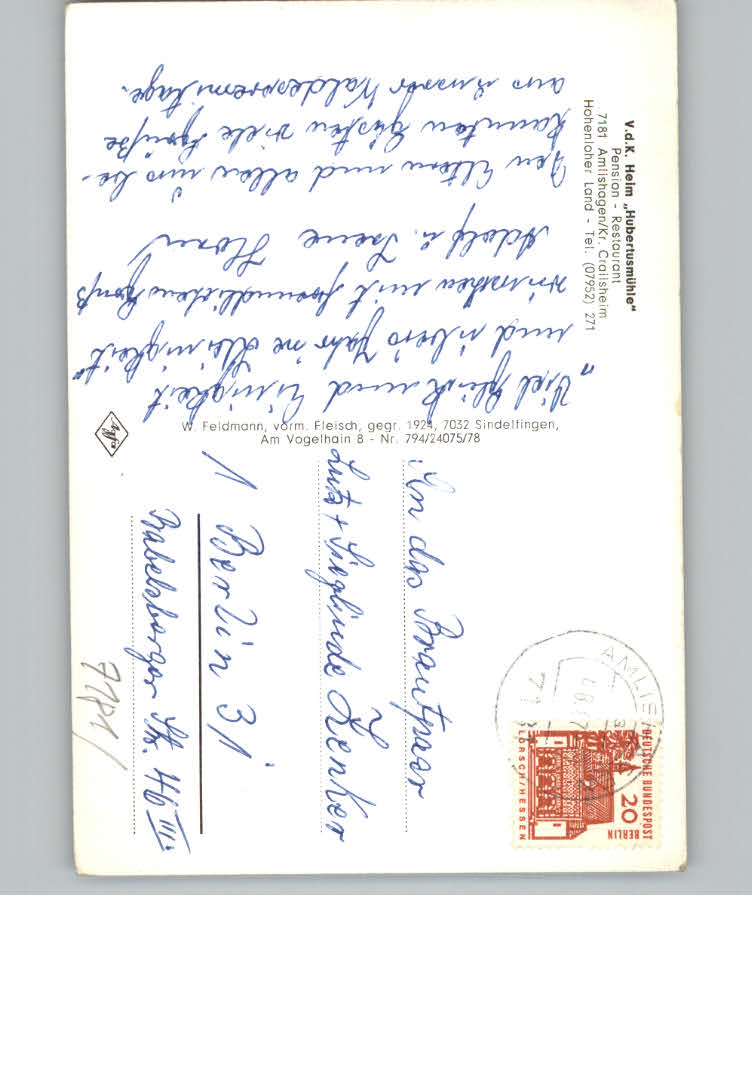 V.d.K. Heim „Hubertusmühle"
Pension - Restaurant
7181 Amlishagen/Kr. Crailsheim
Hohenloher Land - Tel. (07952) 271
„Viel Glück und Einigkeit
und übers Jahr ne Kleinigkeit"
wünschen mit freundlichem Gruß
Adolf u. Irene Horn
Den Eltern und allen uns be-
kannten Gästen viele Grüße
aus unserer Waldeseremitage.
W. Feldmann, vorm. Fleisch, gegr. 1924, 7032 Sindelfingen,
Am Vogelhain 8 - Nr. 794/24075/78
Agfa
An das Brautpaar
Lutz + Sieglinde Lenker
1 Berlin 31
Babelsberger Str. 46 III
7181
DEUTSCHE BUNDESPOST
BERLIN
20
LORSCH/HESSEN